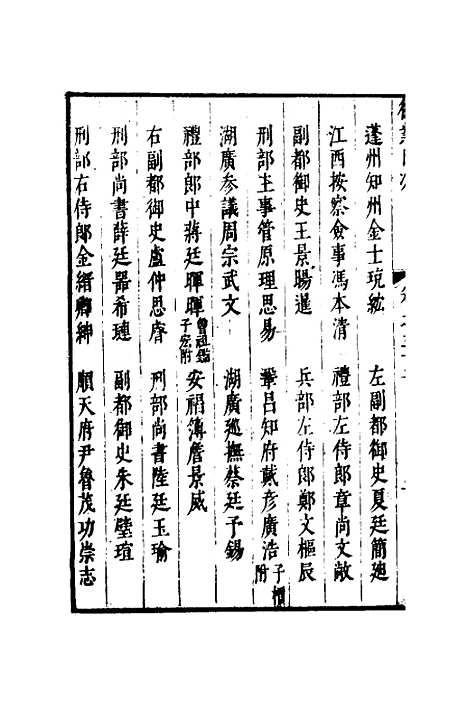 蓬州知州金士琬紘　左副都御史夏廷簡廸
江西按察僉事馮本清　禮部左侍郎章尚文敞
副都御史王景暘暹　兵部左侍郎鄭文樞辰
刑部主事管原理思易　鞏昌知府戴彥廣浩子檟附
湖廣參議周宗武文　湖廣巡撫蔡廷予錫
禮部郎中蔣廷暉暉曾祖鑑子宏附　安福簿詹景威
右副都御史盧仲思睿　刑部尚書陸廷玉瑜
刑部尚書薛廷器希璉　副都御史朱廷璧瑄
刑部右侍郎金縉卿紳　順天府尹魯茂功崇志